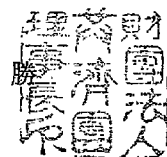 財團法人
濟團
理事長印
勝